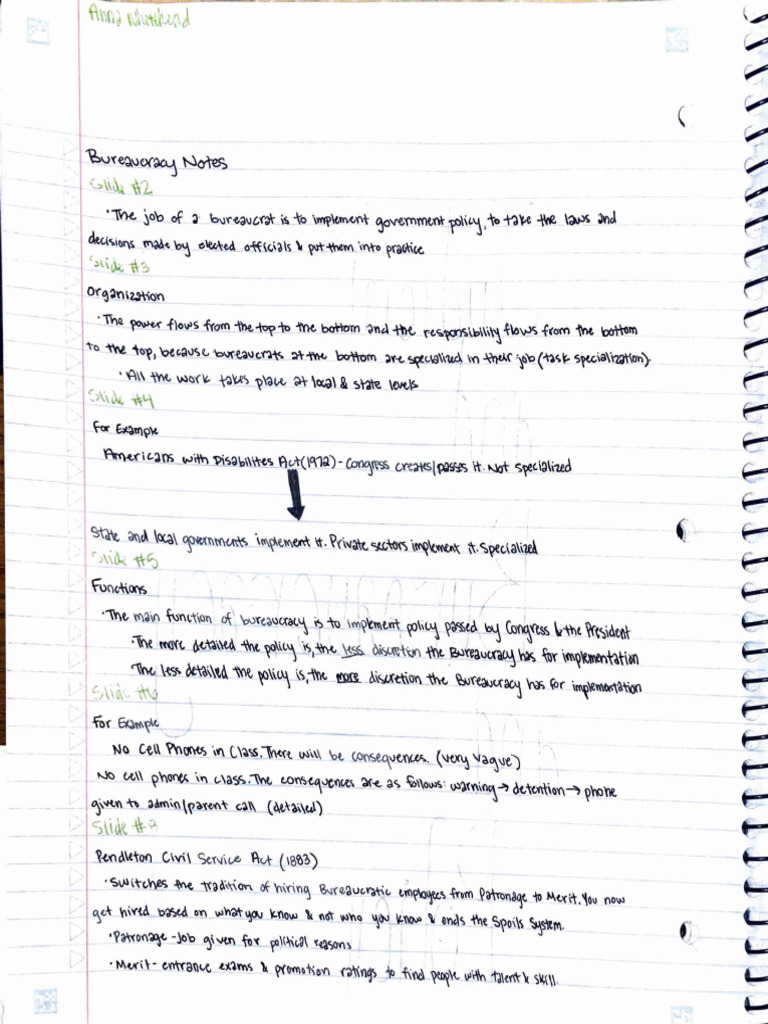 Anna
Bureaucracy Notes
Slide #2
•The job of a bureaucrat is to implement government policy, to take the laws and
decisions made by elected officials & put them into practice
Slide #3
Organization
•The power flows from the top to the bottom and the responsibility flows from the bottom
to the top, because bureaucrats at the bottom are specialized in their job (task specialization).
•All the work takes place at local & state levels
Slide #4
For Example
Americans with Disabilites Act (1972) - Congress creates/passes it. Not specialized
State and local governments implement it. Private sectors implement it. Specialized
Slide #5
Functions
•The main function of bureaucracy is to implement policy passed by Congress & the President
-The more detailed the policy is, the less discretion the Bureaucracy has for implementation
•The less detailed the policy is, the more discretion the Bureaucracy has for implementation
Slide #6
For Example
No Cell Phones in Class. There will be consequences. (very vague)
No cell phones in class. The consequences are as follows: warning → detention → phone
given to admin/parent call (detailed)
Slide #
Pendleton Civil Service Act (1883)
•Switches the tradition of hiring Bureaucratic employees from Patronage to Merit. You now
get hired based on what you know & not who you know & ends the Spoils System.
•Patronage - Job given for political reasons
•Merit - entrance exams & promotion ratings to find people with talent & skill.